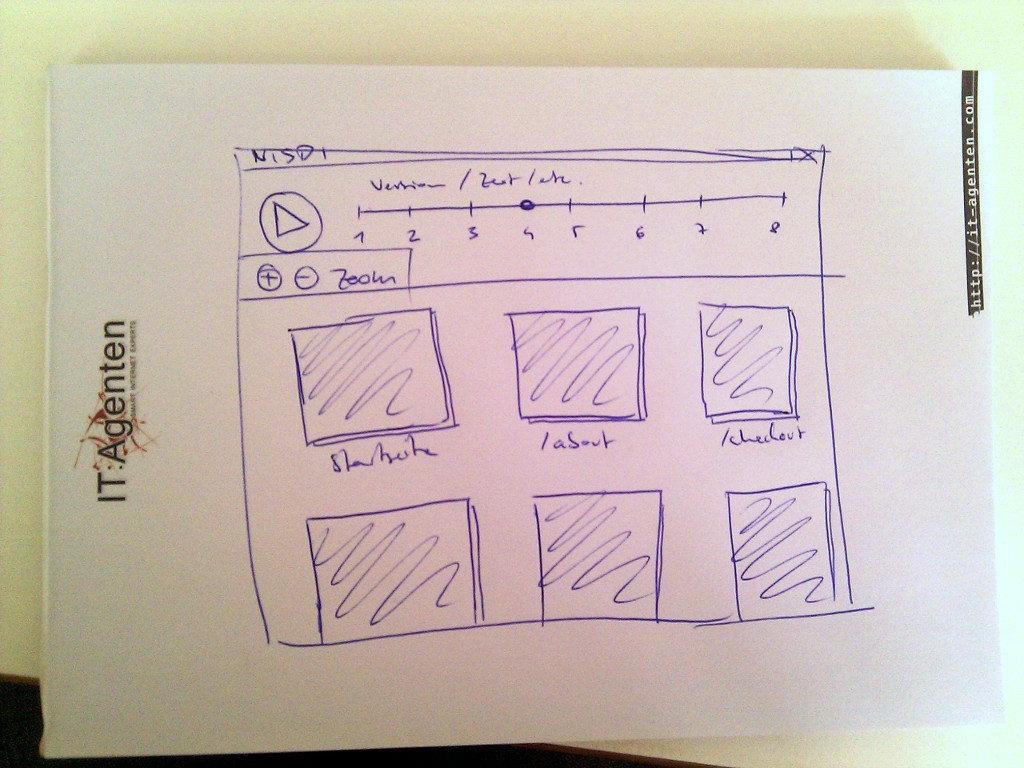 NISDI X
Version / Zeit / etc.
1 2 3 4 5 6 7 8
+ - Zoom
Startseite
/about
/checkout
IT:Agenten
SMART INTERNET EXPERTS
http://it-agenten.com